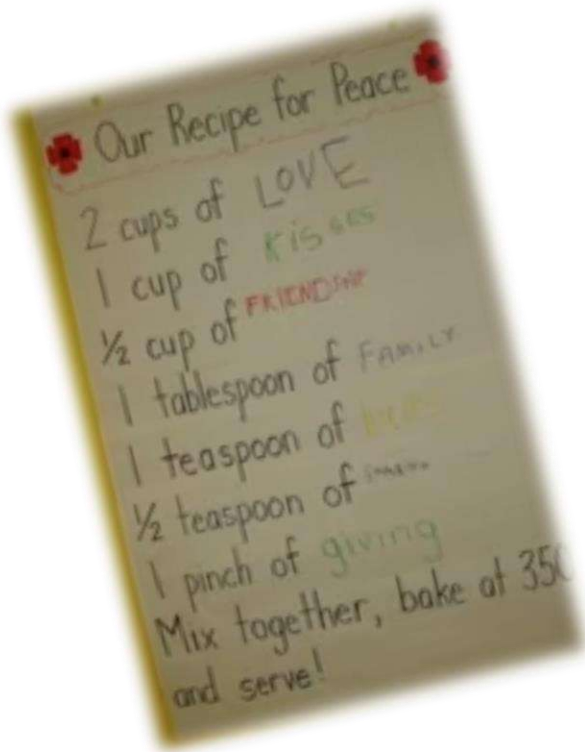 Our Recipe for Peace
2 cups of LOVE
1 cup of kisses
½ cup of FRIENDSHIP
1 tablespoon of FAMILY
1 teaspoon of
½ teaspoon of
1 pinch of giving
Mix together, bake at 350
and serve!